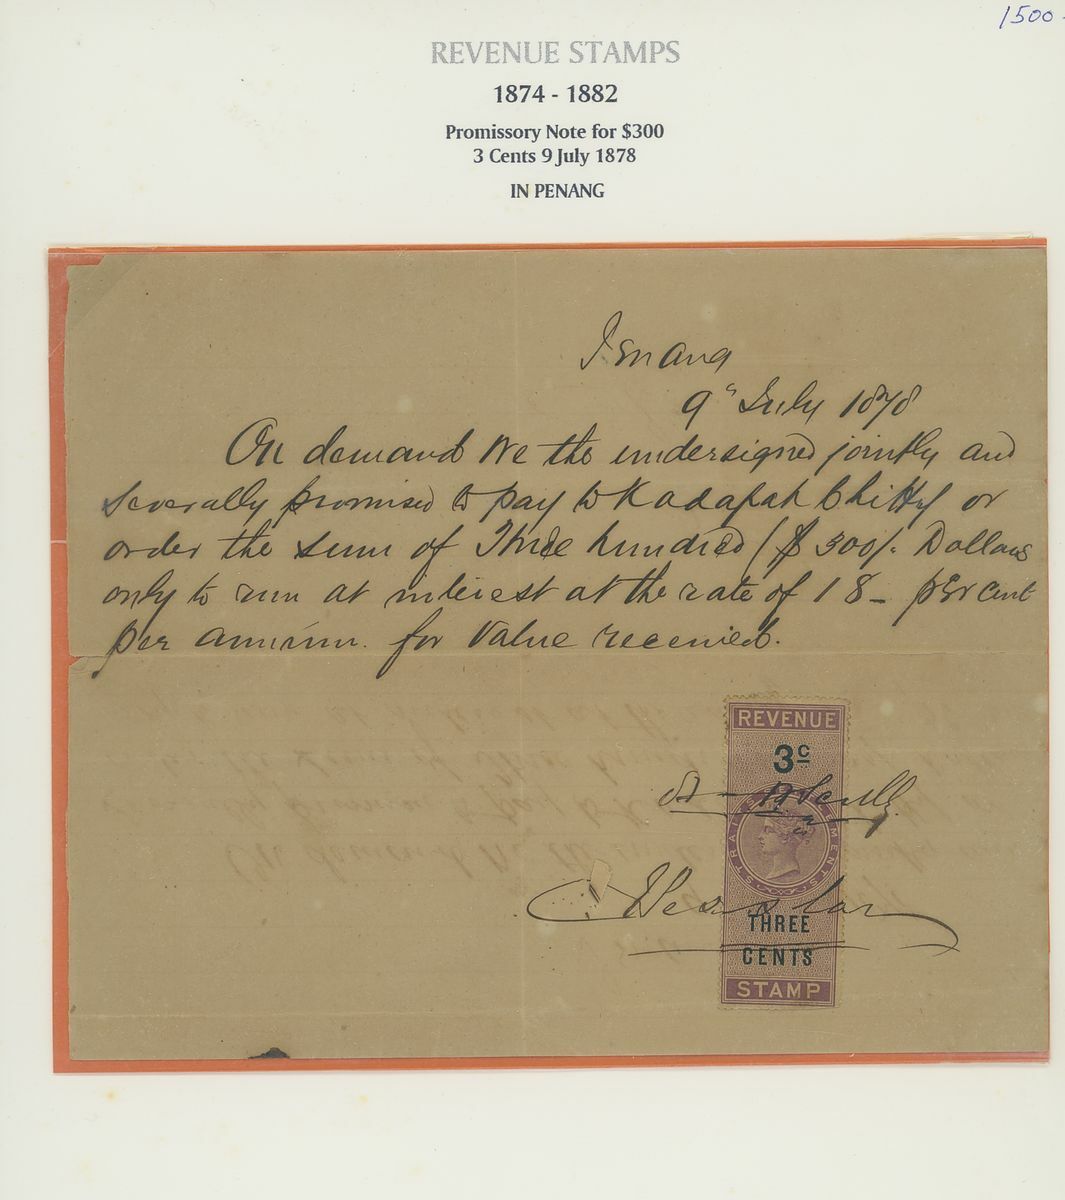 1500-
REVENUE STAMPS
1874 - 1882
Promissory Note for $300
3 Cents 9 July 1878
IN PENANG
Penang
9" July 1878
On demand We the undersigned jointly and
severally promised to pay to Kadapah Chitty or
order the sum of Three hundred ($ 300/- Dollars
only to run at interest at the rate of 18 - per cent
per annum. for Value received.
REVENUE
3c
STRAITS SETTLEMENTS
THREE
CENTS
STAMP